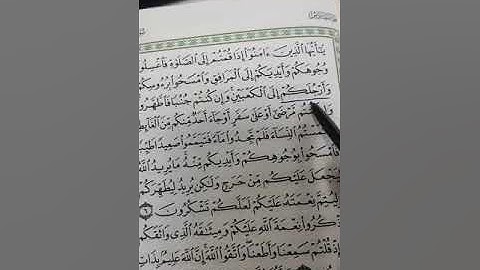 يَٰٓأَيُّهَا ٱلَّذِينَ ءَامَنُوٓا۟ إِذَا قُمْتُمْ إِلَى ٱلصَّلَوٰةِ فَٱغْسِلُوا۟
وُجُوهَكُمْ وَأَيْدِيَكُمْ إِلَى ٱلْمَرَافِقِ وَٱمْسَحُوا۟ بِرُءُوسِكُمْ
وَأَرْجُلَكُمْ إِلَى ٱلْكَعْبَيْنِ وَإِن كُنتُمْ جُنُبًا فَٱطَّهَّرُوا۟
مَّرْضَىٰٓ أَوْ عَلَىٰ سَفَرٍ أَوْ جَآءَ أَحَدٌ مِّنكُم مِّنَ ٱلْغَآئِطِ
ٱلنِّسَآءَ فَلَمْ تَجِدُوا۟ مَآءً فَتَيَمَّمُوا۟ صَعِيدًا طَيِّبًا
فَٱمْسَحُوا۟ بِوُجُوهِكُمْ وَأَيْدِيكُم مِّنْهُ مَا يُرِيدُ ٱللَّهُ
لِيَجْعَلَ عَلَيْكُم مِّنْ حَرَجٍ وَلَٰكِن يُرِيدُ لِيُطَهِّرَكُمْ
وَلِيُتِمَّ نِعْمَتَهُۥ عَلَيْكُمْ لَعَلَّكُمْ تَشْكُرُونَ ٦
نِعْمَةَ ٱللَّهِ عَلَيْكُمْ وَمِيثَٰقَهُ ٱلَّذِى وَاثَقَكُم
إِذْ قُلْتُمْ سَمِعْنَا وَأَطَعْنَا وَٱتَّقُوا۟ ٱللَّهَ إِنَّ ٱللَّهَ عَلِيمٌۢ بِذَاتِ